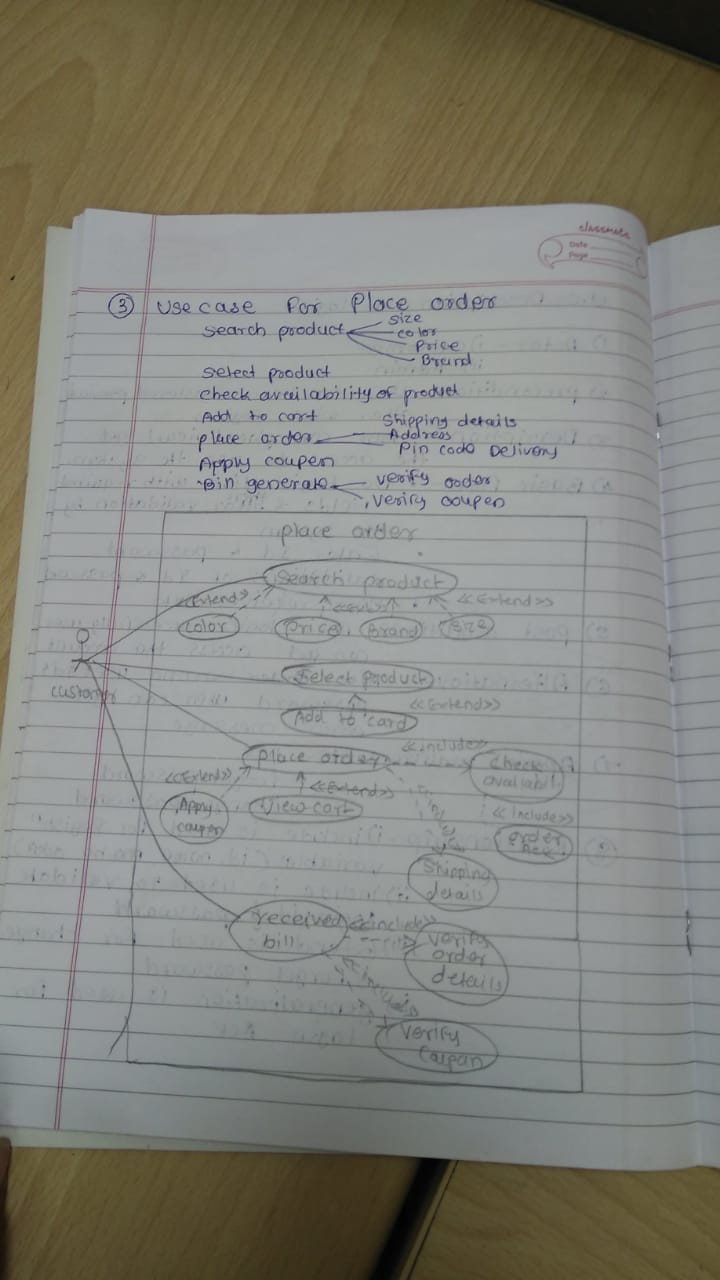 classmate
Date
Page
③ Use case For Place order
Search product
Size
color
Price
Brand
Select product
Check availability of product
Add to cart
Shipping details
place order
Address
Pin code Delivery
Apply coupen
Bin generate
verify order
verify coupen
place order
Search product
<<Extend>>
<<Extend>>
color
price
Brand
size
Select product
customer
<<Extend>>
Add to card
<<include>>
Place order
Check availabil
<<Extend>>
<<Extend>>
Apply coupen
View cart
<<include>>
order
Shipping details
received bill
<<include>>
verify order details
<<include>>
verify coupan